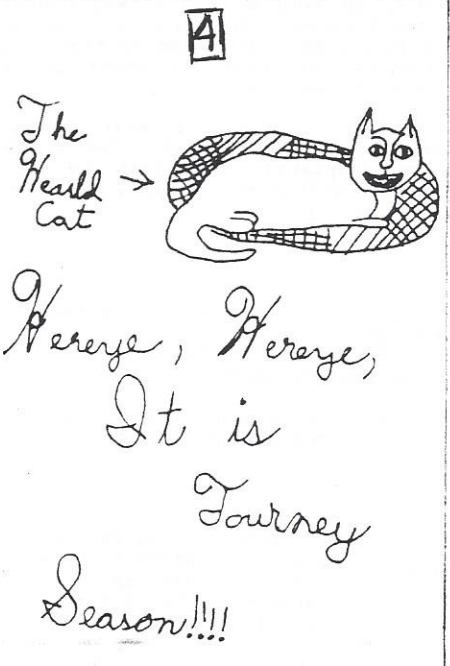 4
The
Hearld
Cat
Hereye, Hereye,
It is
Tourney
Season!!!!